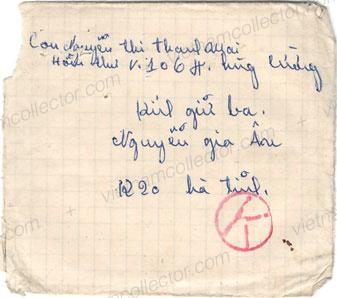 Con Nguyễn thi thanh Mai
Hòm thư V.106 H. hùng cường
kính gửi ba.
Nguyễn gia Ân
K20 hà tĩnh.
vietnamcollector.com